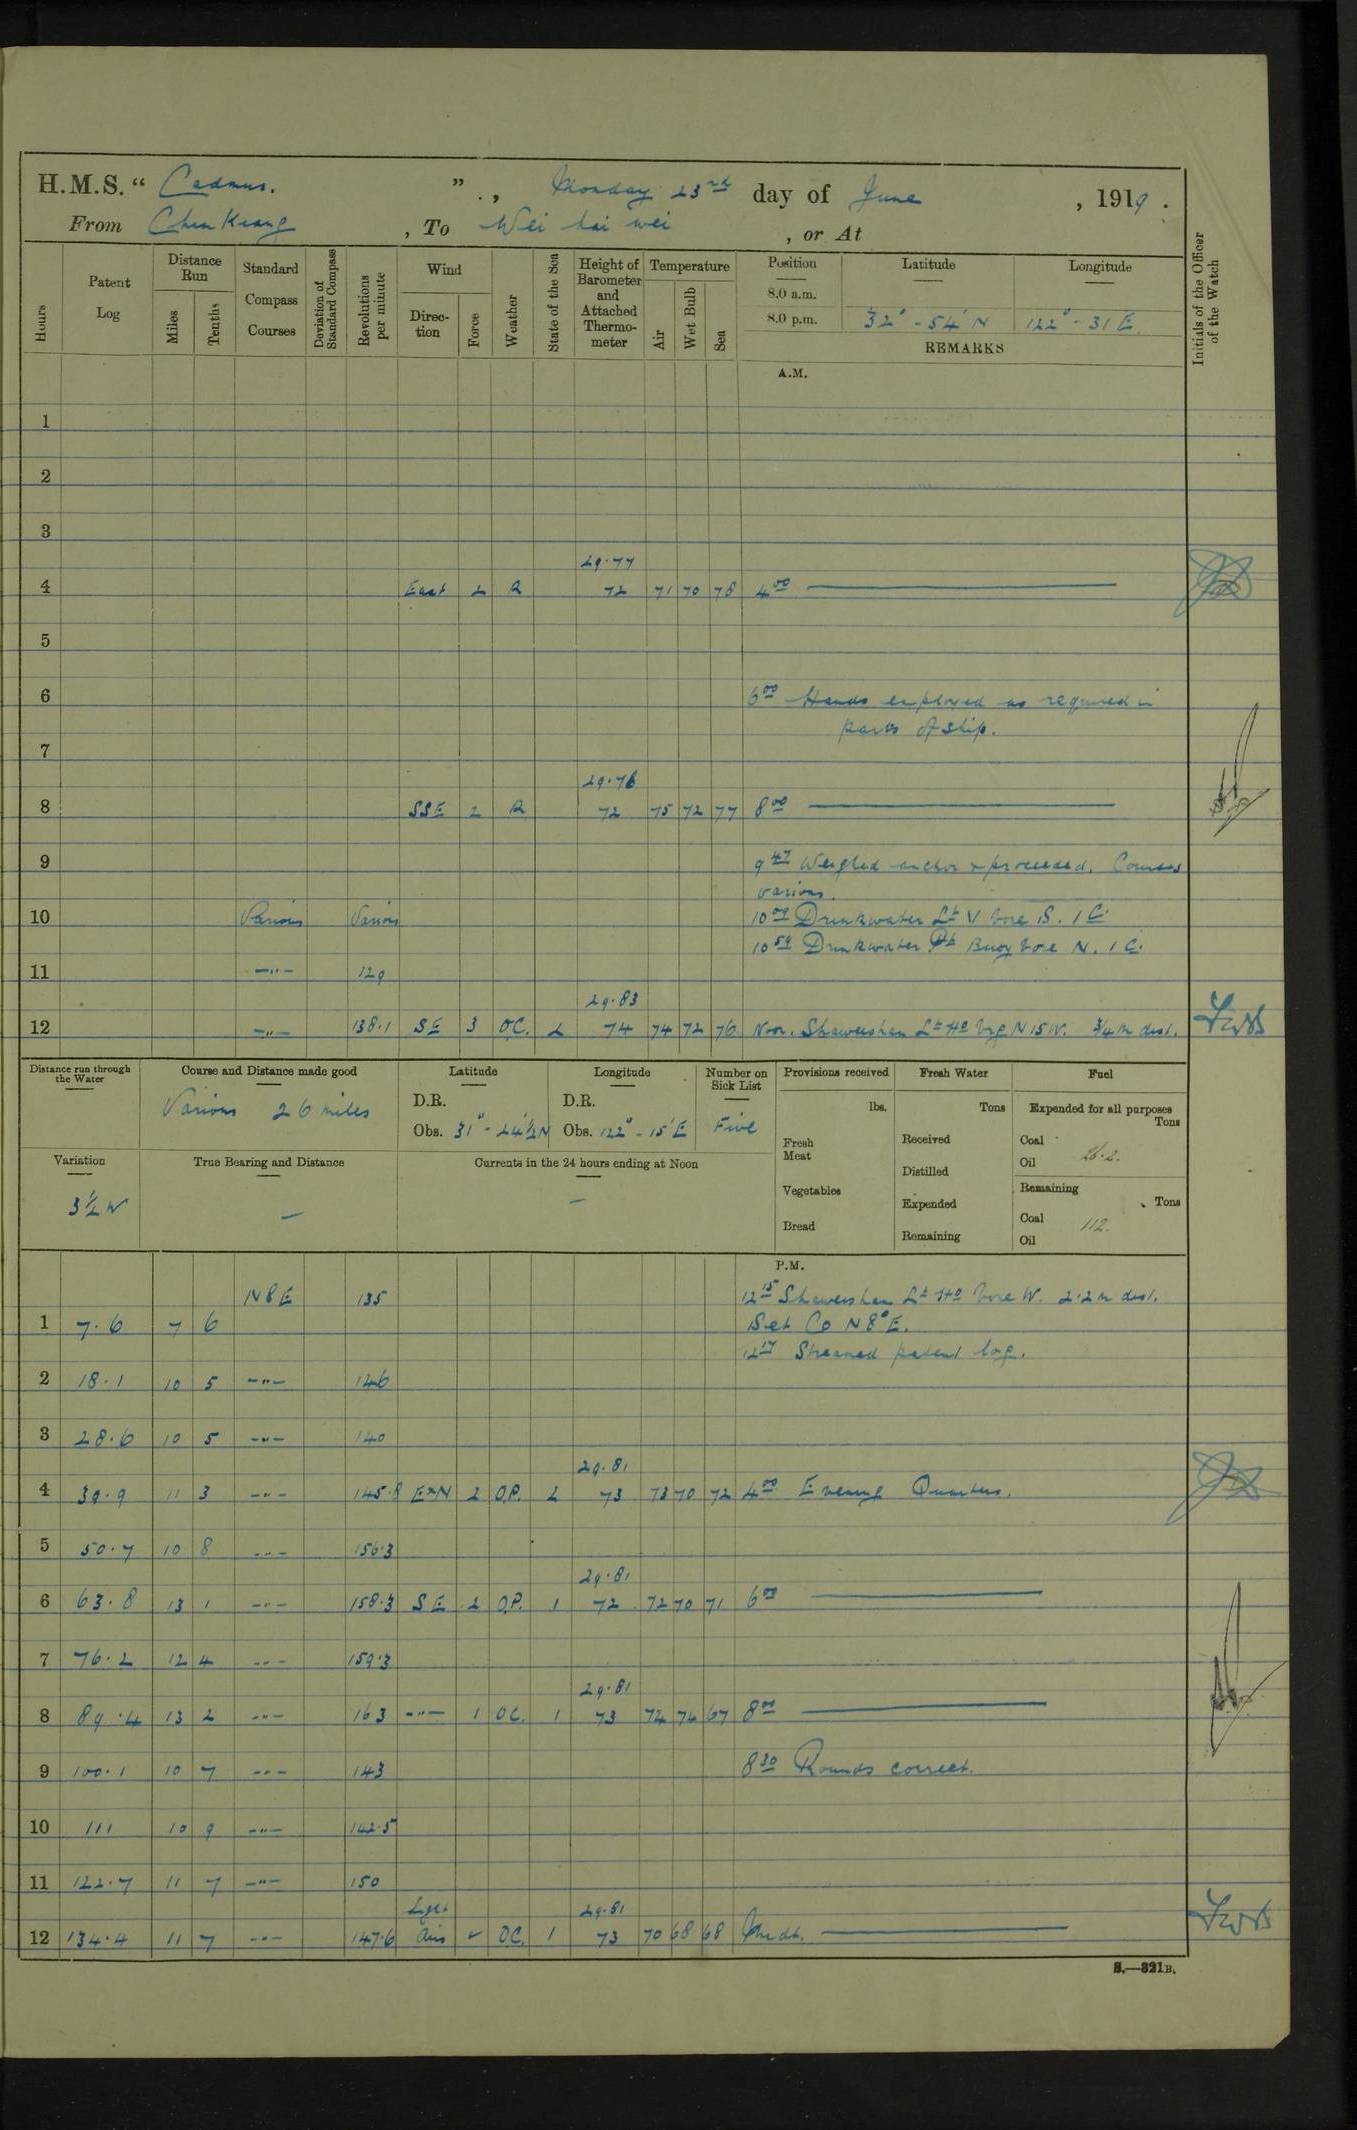 H.M.S. “ Cadmus. ” . , Monday 23rd day of June , 1919 .
From Chin Kiang , To Wei hai wei , or At
Hours Patent Log Distance Run Miles Tenths Standard Compass Courses Deviation of Standard Compass Revolutions per minute Wind Direction Force Weather State of the Sea Height of Barometer and Attached Thermometer Temperature Air Wet Bulb Sea Position Latitude Longitude Initials of the Officer of the Watch
8.0 a.m.
8.0 p.m. 32° - 54' N 122° - 31 E.
REMARKS
A.M.
1
2
3
29.77
4 East 2 R 72 71 70 78 4 00 —
5
6 6 00 Hands employed as required in
parts of ship.
7
29.76
8 SSE 2 R 72 75 72 77 8 00 —
9 9 47 Weighed anchor & proceeded. Courses
various.
10 Various Various Drinkwater Lt V bore S. 1 C.
10 59 Drinkwater Pt Buoy bore N. 1 C.
11 -"- 129
29.83
12 -"- 138.1 SE 3 O.C. 2 74 74 72 76 Noon. Shaweishan Lt Ho brg N 15 W. 3/4 m dist.
Distance run through the Water Course and Distance made good Latitude Longitude Number on Sick List Provisions received Fresh Water Fuel
Various 26 miles D.R. D.R. Five lbs. Tons Expended for all purposes Tons
Obs. 31° - 24 1/2 N Obs. 122° - 15' E
Fresh Meat Received Coal 26.2.
Oil
Variation True Bearing and Distance Currents in the 24 hours ending at Noon Distilled
3 1/2 W — — Vegetables Expended Remaining Tons
Bread Remaining Coal 112.
Oil
P.M.
N 8 E 135 12 15 Shaweishan Lt Ho bore W. 2.2 m dist.
1 7.6 7 6 Set Co N 8° E.
12 17 Streamed patent log.
2 18.1 10 5 -"- 146
3 28.6 10 5 -"- 140
29.81
4 39.9 11 3 -"- 145.8 ExN 2 O.P. 2 73 73 70 72 4 00 Evening Quarters.
5 50.7 10 8 -"- 156.3
29.81
6 63.8 13 1 -"- 158.3 SE 2 O.P. 1 72 72 70 71 6 00 —
7 76.2 12 4 -"- 159.3
29.81
8 89.4 13 2 -"- 163 -"- 1 O.C. 1 73 74 74 67 8 00 —
9 100.1 10 7 -"- 143 8 30 Rounds correct.
10 111 10 9 -"- 142.5
11 122.7 11 7 -"- 150
Light 29.81
12 134.4 11 7 -"- 147.6 Airs O.C. 1 73 70 68 68 Midt. —
S.—321B.